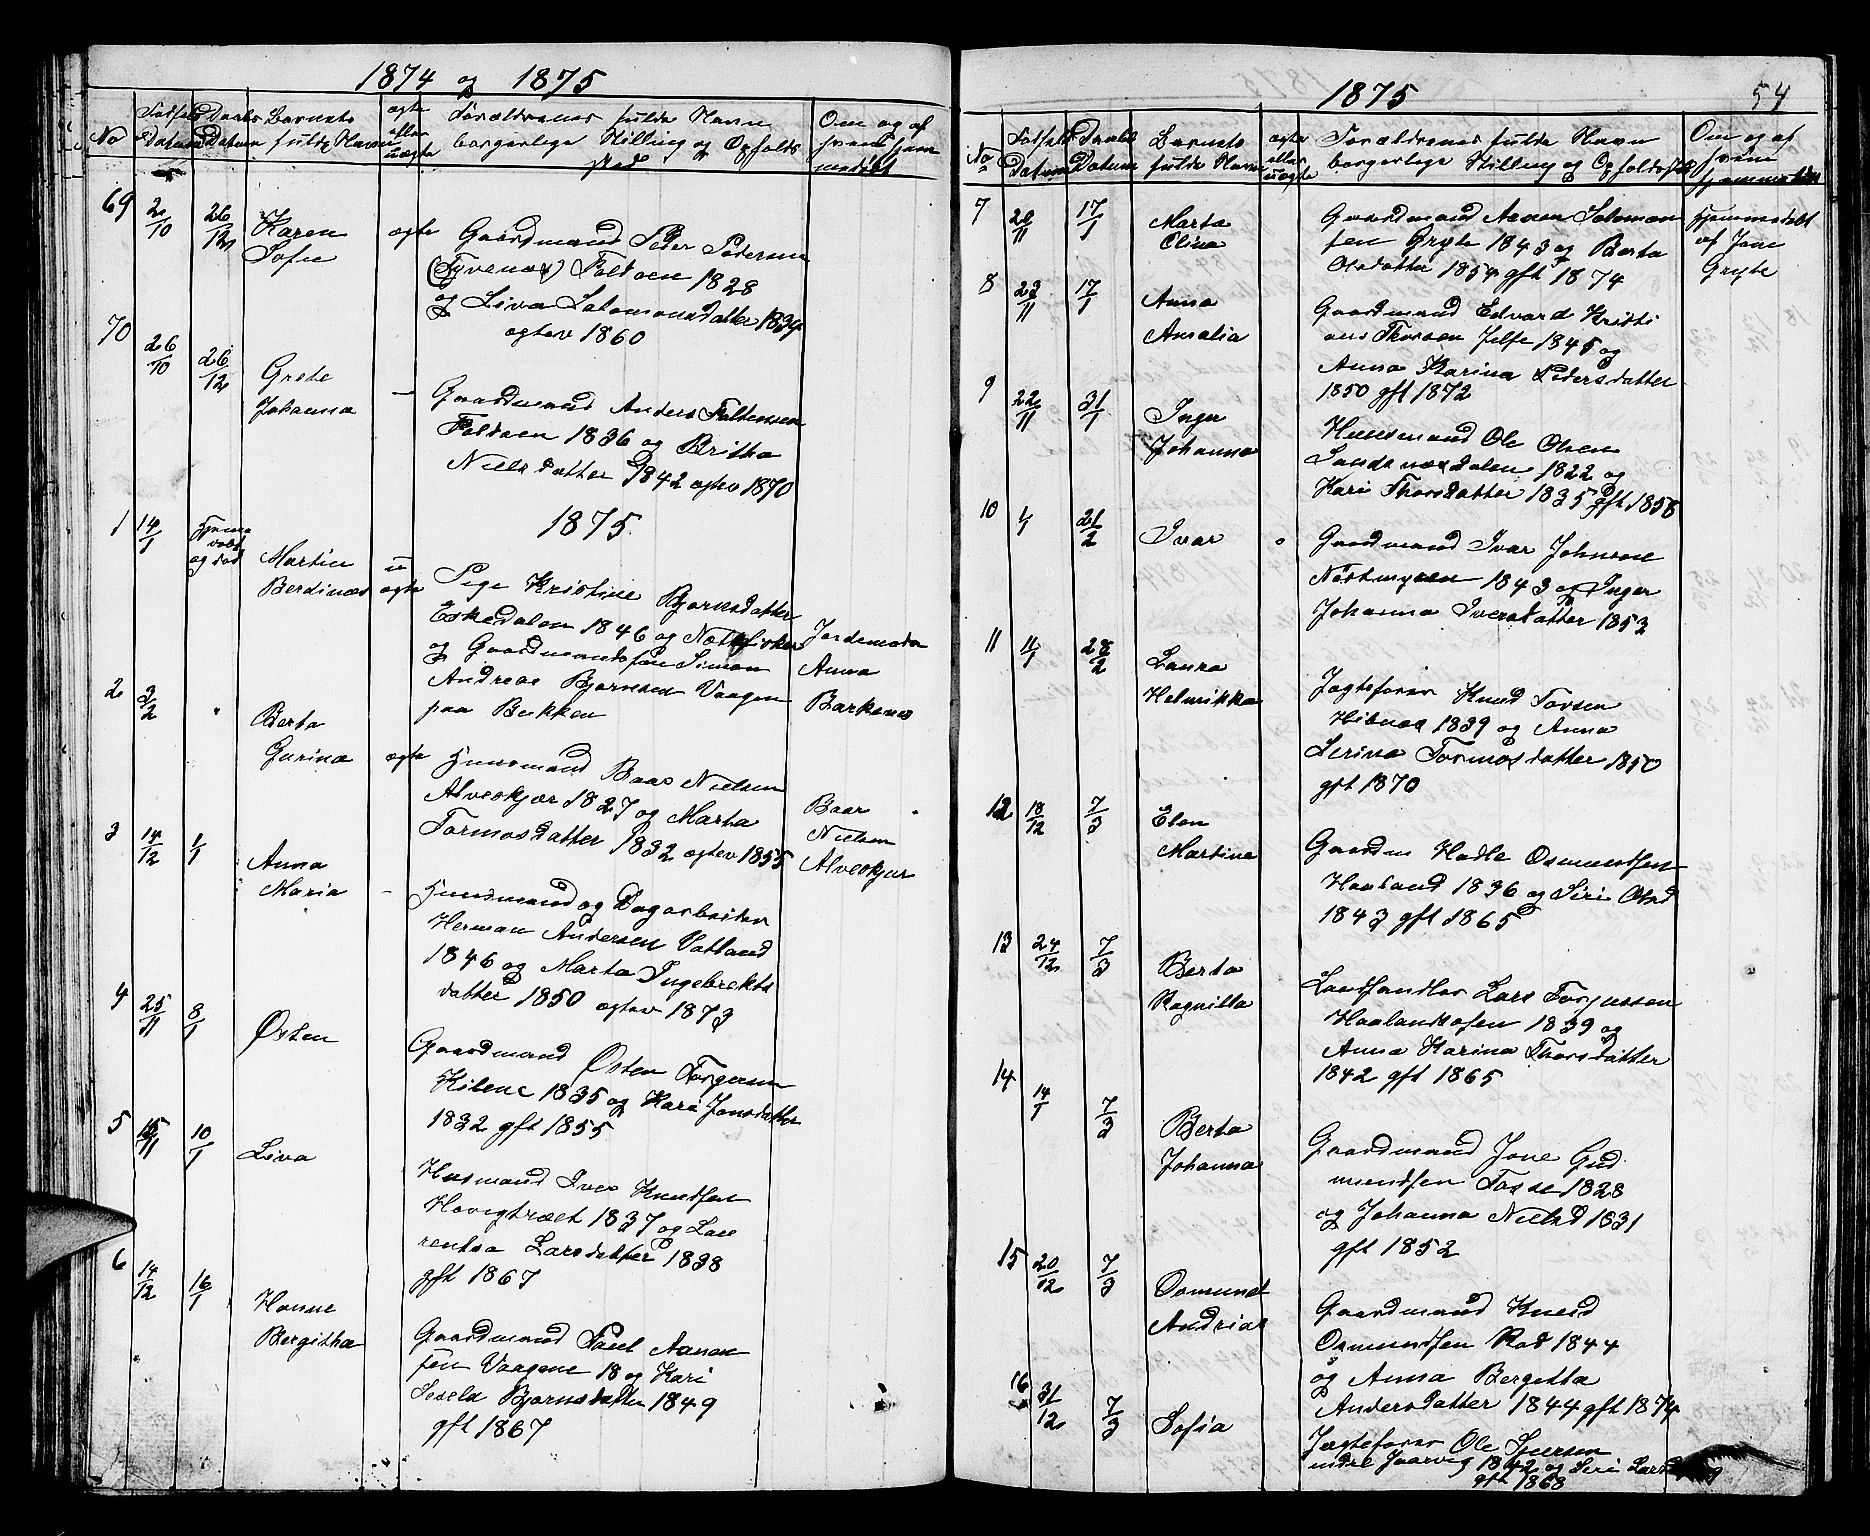 1874 og 1875
No Fødsels Datum Daabs Datum Barnets fulde Navn ægte eller uægte Forældrenes fulde Navn borgerlige Stilling og Opholds sted Om og af hvem hjem medøbt
69 2/10 26/12 Karen Sofie ægte Gaardmand Peder Pedersen
(Tyvenæs) Foldøen 1828
og Liva Salomonsdatter 1834
egtev 1860
70 26/10 26/12 Grete Johanna — Gaardmand Anders Faltensen
Foldøen 1836 og Britha
Nielsdatter 1842 egtev 1870
1875
1 14/1 Hjemme døbt og død Martin Berdinas u ægte Pige Kristine Bjørnsdatter
Eskedalen 1846 og
og Gaardmandsføn Simon
Andreas Bjørnsen Vaagen
paa Bekken
Jordemoder
Anna
Barkenes
2 2/2 " Berta Gurina ægte Huusmand Baar Nielsen
Alveskjær 1827 og Marta
Tormosdatter 1832 egtev 1855
Baar
Nielsen
Alveskjær
3 14/12 1/1 Anna Maria - Huusmand og Dagarbeider
Herman Andersen Vatland
1846 og Marta Ingebrekts
datter 1850 egtev 1873
4 25/11 8/1 Østen Gaardmand Østen Torgersen
Kilene 1835 og Kari Jonsdatter
1832 gft 1855
5 15/11 10/1 Liva Husmand Iver Knudsen
Hovigtræet 1837 og Lau
rentsa Larsdatter 1838
gft 1867
6 14/12 16/1 Hanne Bergitha Gaardmand Poul Aanen
sen Vaagene 18 og Kari
Sesela Bjørnsdatter 1849
gft 1867
1875
54
No Fødsels Datum Daabs Datum Barnets fulde Navn ægte eller uægte Forældrenes fulde Navn borgerlige Stilling og Opholdssted Om og af hvem hjemmedøbt
7 20/11 17/1 Marta Olina Gaardmand Aanen Salomon
sen Gryte 1843 og Berta
Olsdatter 1854 gft 1874
Hjemmedøbt
af Jone
Gryte
8 23/11 17/1 Anna Amalia Gaardmand Edvard Kristi
ans Thorsen Jelse 1845 og
Anna Karina Pedersdatter
1850 gft 1872
9 22/11 31/1 Inger Johanna Huusmand Ole Olsen
Sandsnæsdalen 1822 og
Kari Thorsdatter 1835 gft 1858
10 1/1 21/2 Ivar " Gaardmand Ivar Johnsen
Nøstmyren 1843 og Inger
Johanna Iversdatter 1853
11 11/1 28/2 Laura Helmikka Jægteforer Knud Torsen
Hibnæs 1839 og Anna
Serina Tormosdatter 1850
gft 1870
12 18/12 7/3 Elen Martine Gaardm Hadle Osmundsen
Haaland 1836 og Siri Olsd
1843 gft 1865
13 24/12 7/3 Berta Ragnilla Landhandler Lars Torgersen
Haalandsosen 1839 og
Anna Karina Thorsdatter
1842 gft 1865
14 14/1 7/3 Berta Johanna Gaardmand Jone Gud
mundsen Tosse 1828
og Johanna Nielsd 1831
gft 1852
15 20/12 7/3 Osmund Andrias Gaardmand Knud
Osmundsen Rod 1844
og Anna Bergetta
Andersdatter 1844 gft 1874
16 31/12 7/3 Sofia Jægteforer Ole Sjursen
indre Jaarvig 1842 og Siri
gft 1868